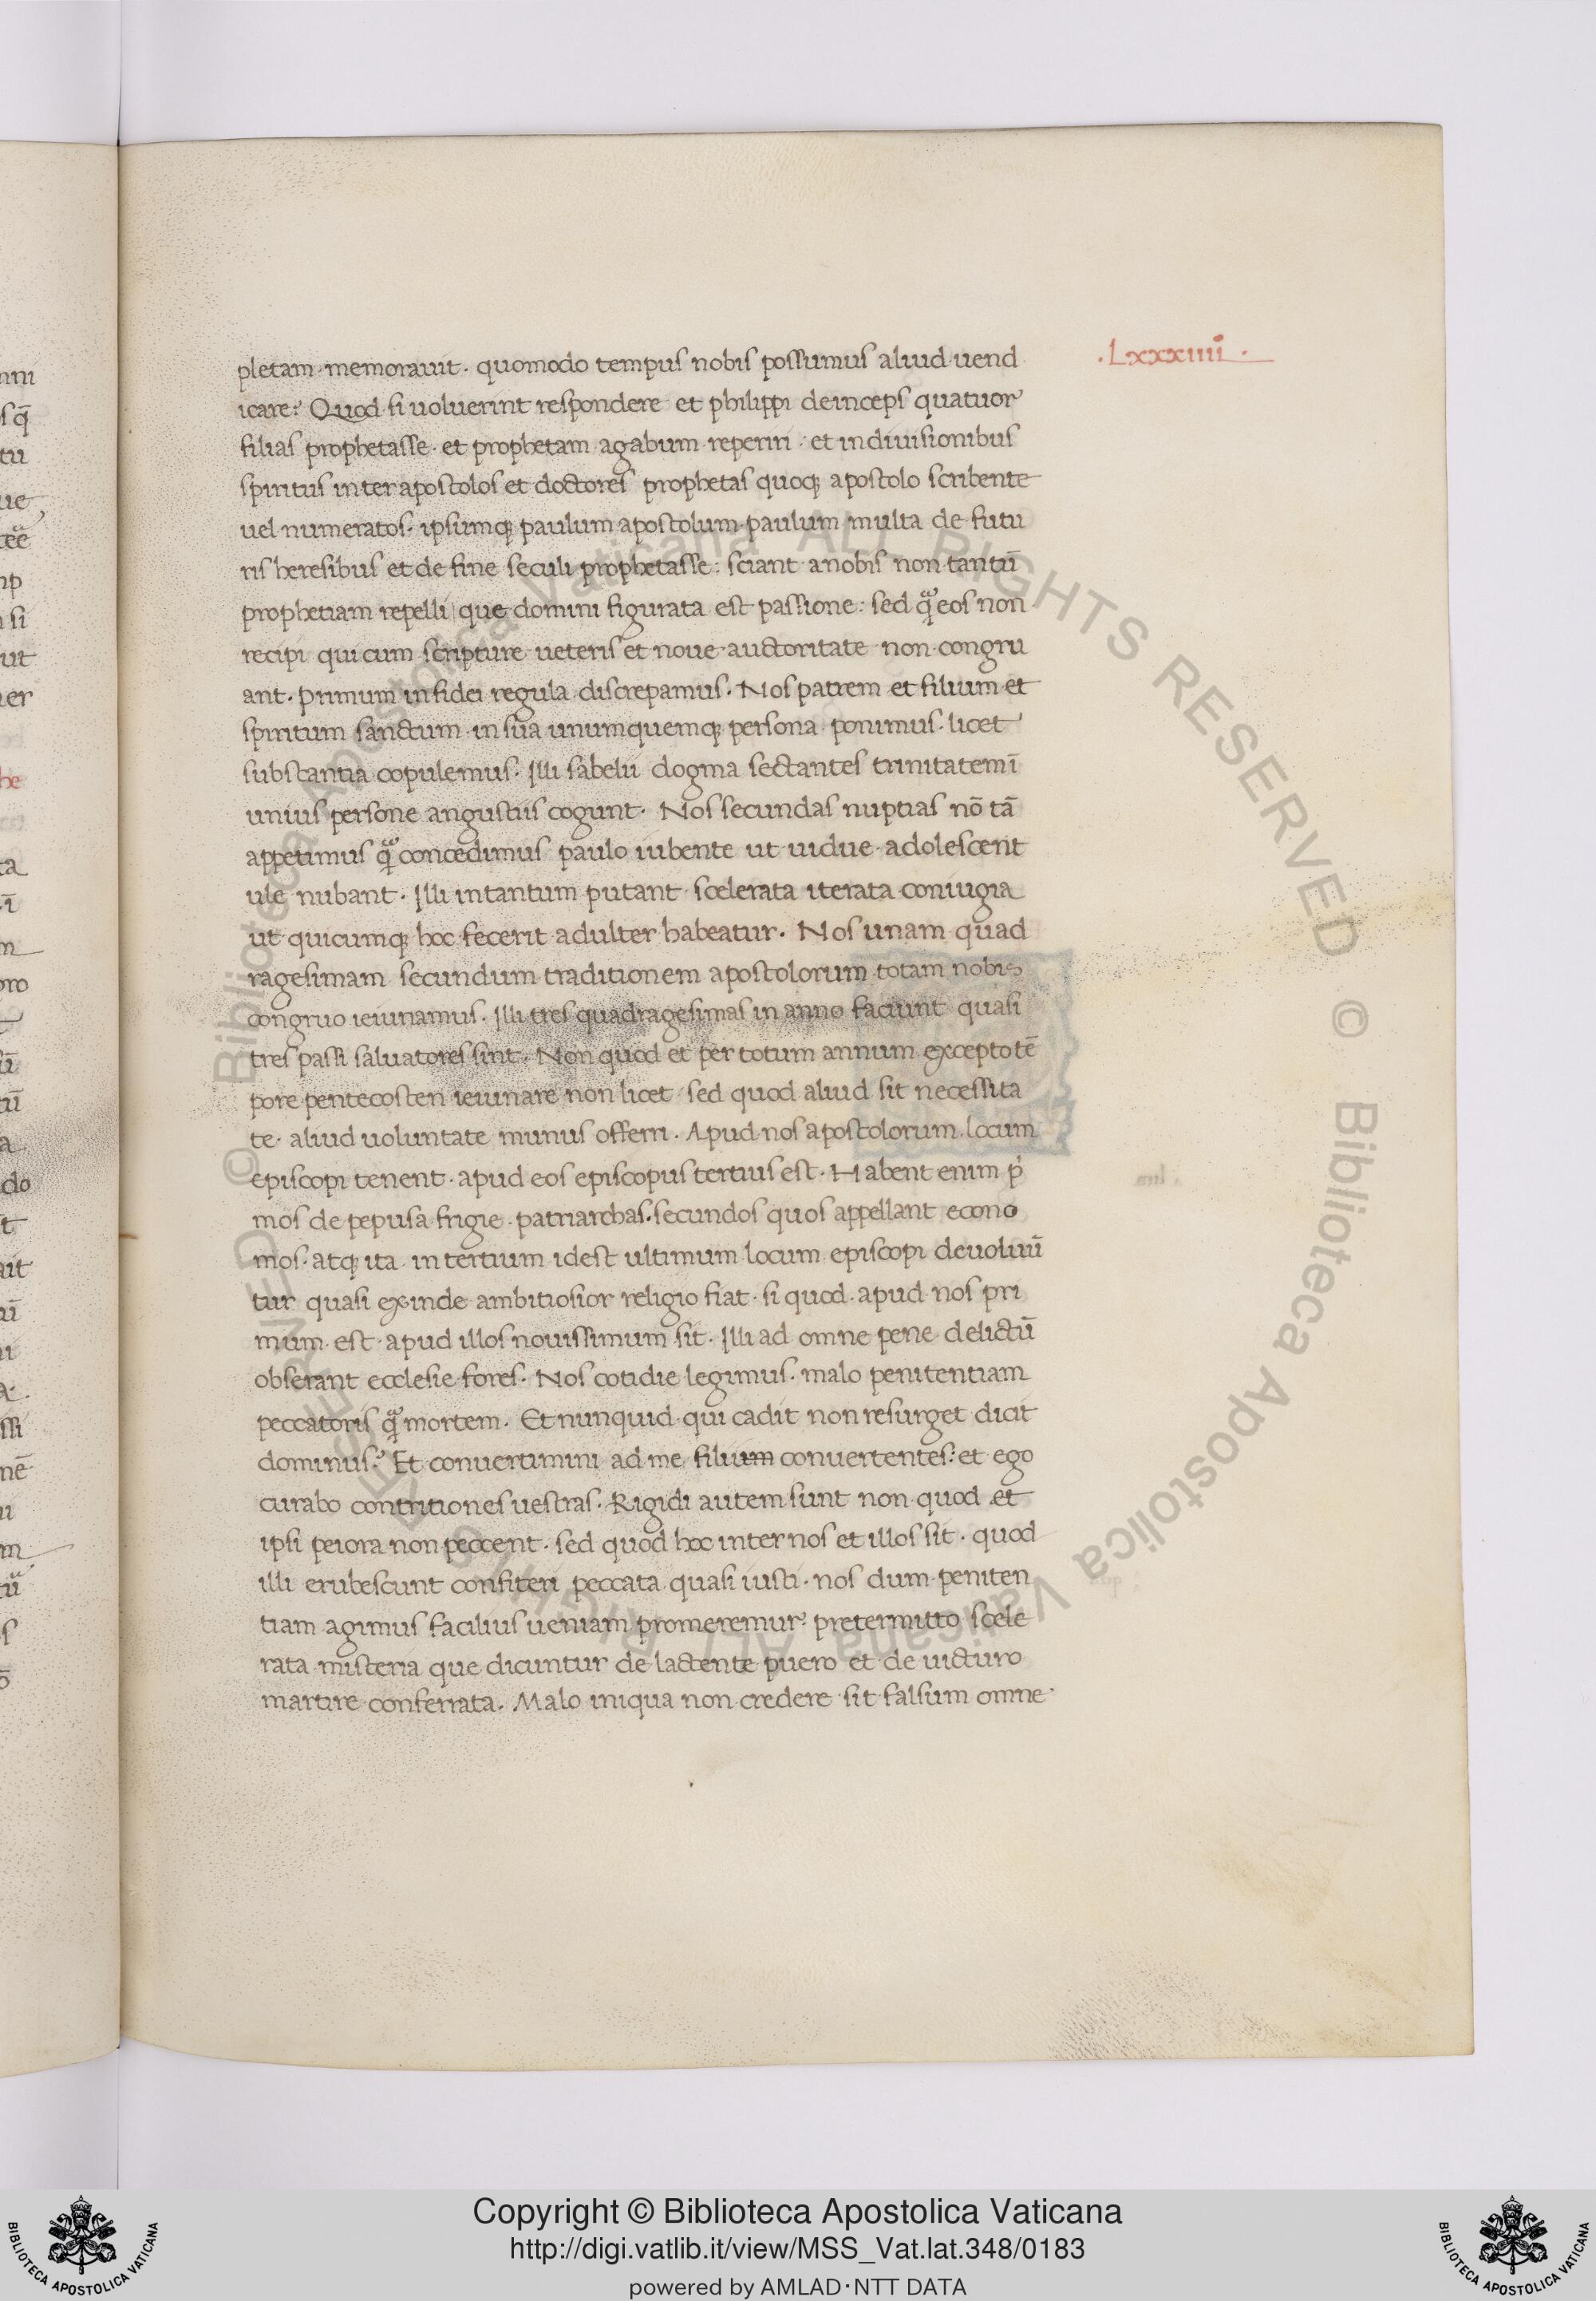 .Lxxxiiii.
pletam·memorauit· quomodo tempus nobis possumus aliud uend
icare? Quod si uoluerint respondere et philippi deinceps quatuor
filias prophetasse· et prophetam agabum reperiri· et in diuisionibus
spiritus inter apostolos et doctores prophetas quoq; apostolo scribente
uel numeratos· ipsumq; paulum apostolum paulum multa de futu
ris heresibus et de fine seculi prophetasse: sciant a nobis non tantū
prophetiam repelli que domini figurata est passione: sed qᷓ eos non
recipi qui cum scripture ueteris et noue auctoritate non congru
ant· primum in fidei regula discrepamus· Nos patrem et filium et
spiritum sanctum in sua unumquemq; persona ponimus· licet
substantia copulemus· Illi sabelii dogma sectantes trinitatem ī
unius persone angustiis cogunt· Nos secundas nuptias nō tā
appetimus qᷓ concedimus paulo iubente ut uidue adolescent
ule nubant· Illi in tantum putant scelerata iterata coniugia
ut quicumq; hoc fecerit adulter habeatur· Nos unam quad
ragesimam secundum traditionem apostolorum totam nobis
congruo ieiunamus· Illi tres quadragesimas in anno faciunt quasi
tres passi saluatores sint· Non quod et per totum annum excepto tē
pore pentecosten ieiunare non licet sed quod aliud sit necessita
te· aliud uoluntate munus offerri· Apud nos apostolorum locum
episcopi tenent· apud eos episcopus tertius est· Habent enim pⁱ
mos de pepusa frigie patriarchas·secundos quos appellant econo
mos· atq; ita in tertium idest ultimum locum episcopi deuoluū
tur quasi exinde ambitiosior religio fiat· si quod apud nos pri
mum est· apud illos nouissimum sit· Illi ad omne pene delictū
obserant ecclesie fores· Nos cotidie legimus· malo penitentiam
peccatoris qᷓ mortem· Et nunquid qui cadit non resurget dicit
dominus? Et conuertimini ad me filium conuertentes: et ego
curabo contritiones uestras· Rigidi autem sunt non quod et
ipsi peiora non peccent· sed quod hoc inter nos et illos sit· quod
illi erubescunt confiteri peccata quasi iusti· nos dum peniten
tiam agimus facilius ueniam promeremur· pretermitto scele
rata misteria que dicuntur de lactente puero et de uicturo
martire conferrata· Malo iniqua non credere sit falsum omne
Copyright © Biblioteca Apostolica Vaticana
http://digi.vatlib.it/view/MSS_Vat.lat.348/0183
powered by AMLAD·NTT DATA
BIBLIOTECA APOSTOLICA VATICANA
BIBLIOTECA APOSTOLICA VATICANA
© Biblioteca Apostolica Vaticana ALL RIGHTS RESERVED
© Biblioteca Apostolica Vaticana ALL RIGHTS RESERVED